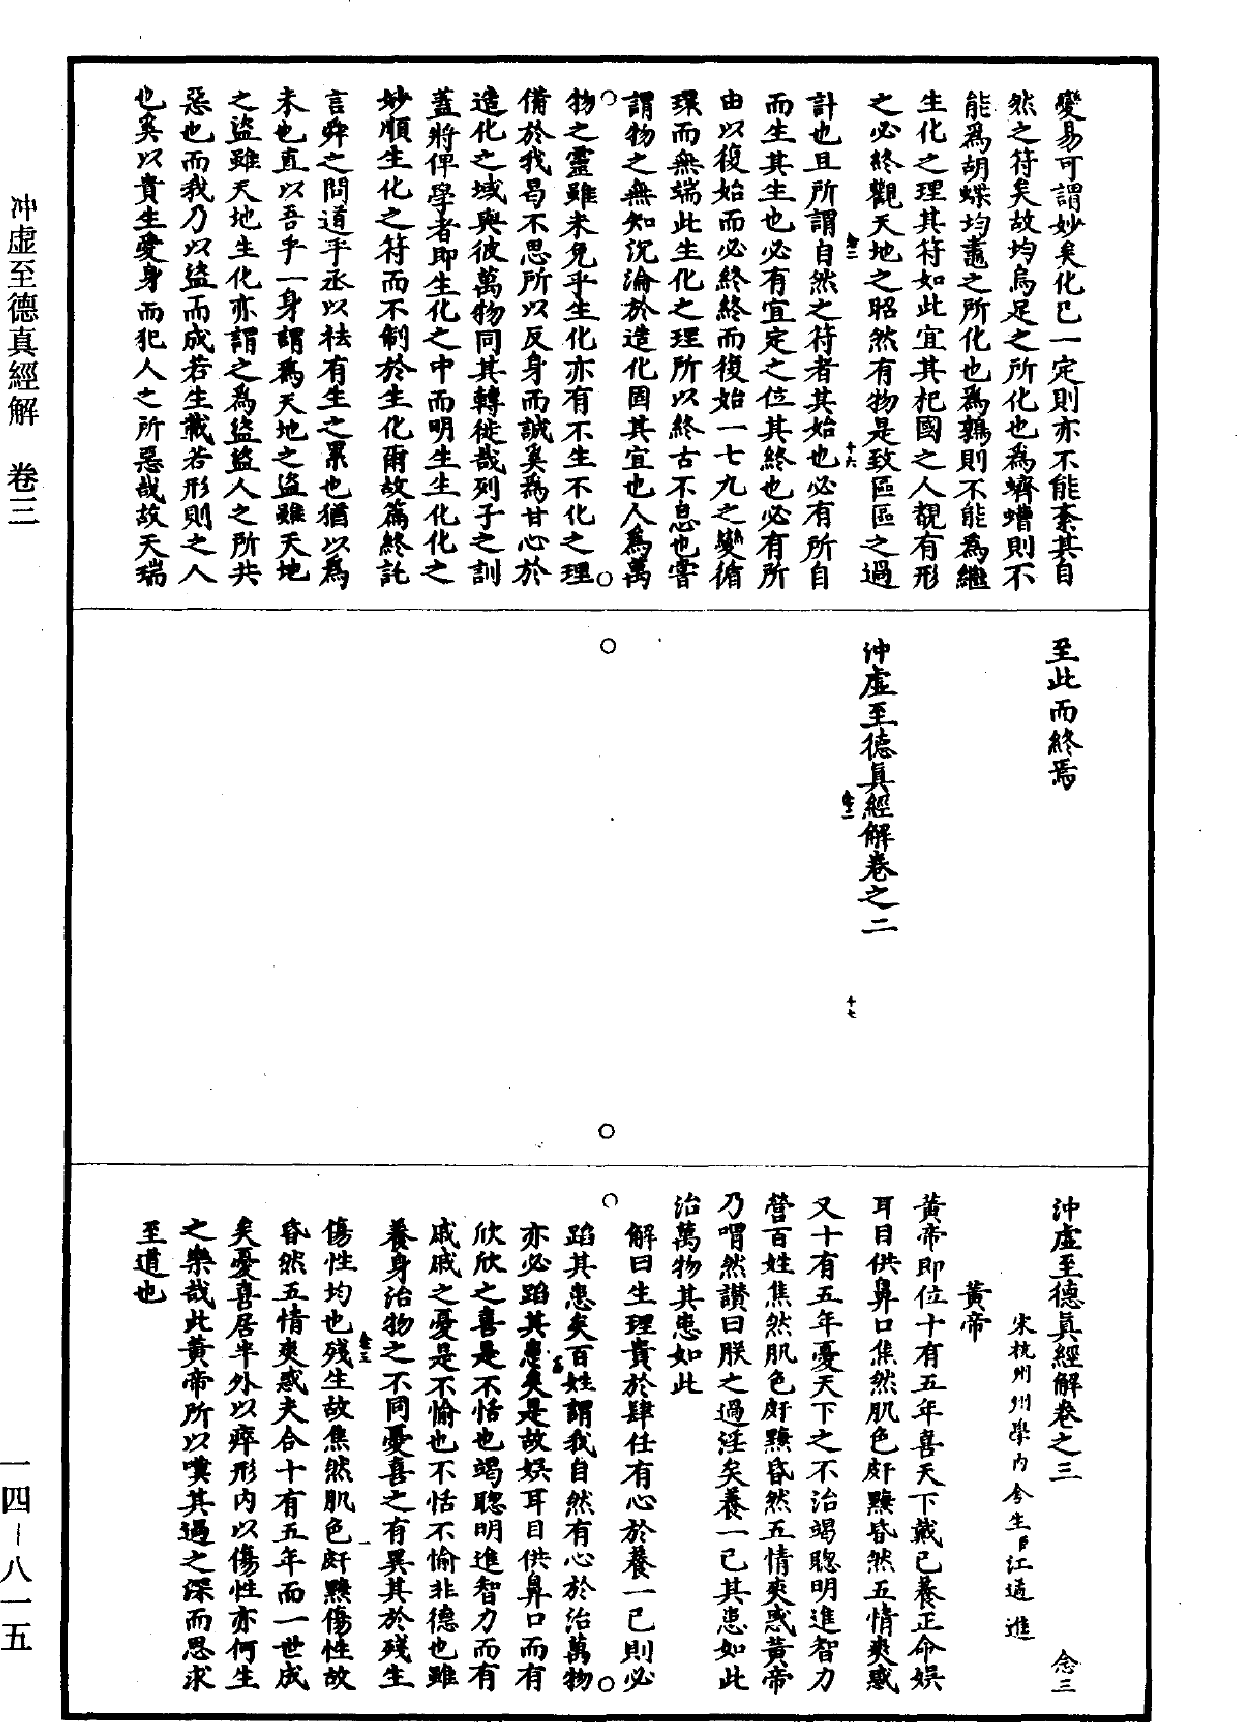 變易可謂妙矣化已一定則亦不能紊其自
然之符矣故均烏足之所化也為蠐螬則不
能為胡蝶均䵷之所化也為鶉則不能為繼
生化之理其符如此宜其杞國之人覩有形
之必終觀天地之昭然有物是致區區之過
計也且所謂自然之符者其始也必有所自
而生其生也必有宜定之位其終也必有所
由以復始而必終終而復始一七九之變循
環而無端此生化之理所以終古不息也嘗
謂物之無知沉淪於造化固其宜也人為萬
物之靈雖未免乎生化亦有不生不化之理
備於我曷不思所以反身而誠奚為甘心於
造化之域與彼萬物同其轉徙哉列子之訓
蓋將俾學者即生化之中而明生生化化之
妙順生化之符而不制於生化爾故篇終託
言舜之問道乎丞以袪有生之累也猶以為
未也直以吾乎一身謂為天地之盜雖天地
之盜雖天地生化亦謂之為盜盜人之所共
惡也而我乃以盜而成若生載若形則之人
也奚以貴生愛身而犯人之所惡哉故天瑞
至此而終焉
沖虛至德真經解卷之二
十六
十七
沖虛至德真經解卷之三
念三
宋杭州州學內舍生臣江遹進
黃帝
黃帝即位十有五年喜天下戴已養正命娛
耳目供鼻口焦然肌色皯黣昏然五情爽惑
又十有五年憂天下之不治竭聰明進智力
營百姓焦然肌色皯黣昏然五情爽惑黃帝
乃喟然讚曰朕之過淫矣養一己其患如此
治萬物其患如此
解曰生理貴於肆任有心於養一已則必
蹈其患矣百姓謂我自然有心於治萬物
亦必蹈其患矣是故娛耳目供鼻口而有
欣欣之喜是不恬也竭聰明進智力而有
戚戚之憂是不愉也不恬不愉非德也雖
養身治物之不同憂喜之有異其於殘生
傷性均也殘生故焦然肌色皯黣傷性故
昏然五情爽惑夫合十有五年而一世成
矣憂喜居半外以瘁形內以傷性亦何生
之樂哉此黃帝所以嘆其過之深而思求
至道也
一
冲虛至德真經解　卷三
一四－八一五